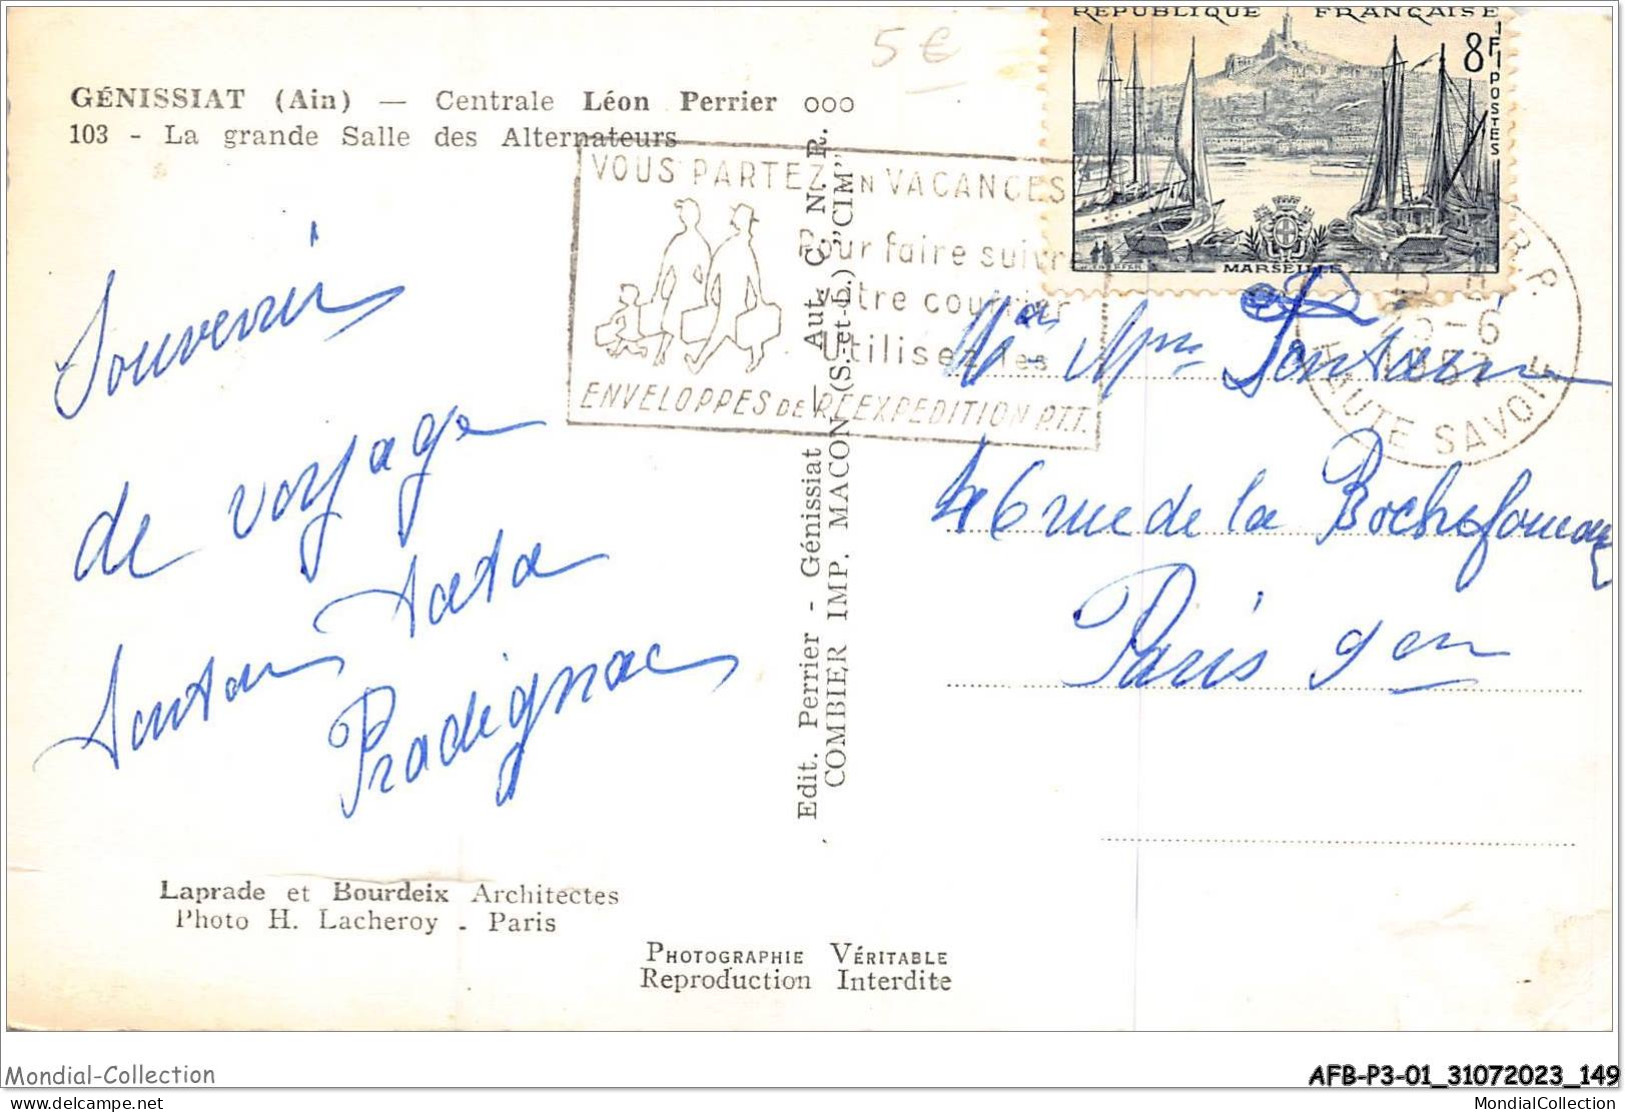 5 €
RÉPUBLIQUE FRANÇAISE
8F
POSTES
MARSEILLE
GÉNISSIAT (Ain) — Centrale Léon Perrier ooo
103 - La grande Salle des Alternateurs
VOUS PARTEZ EN VACANCES
Pour faire suivre
votre courrier
Utilisez les
ENVELOPPES DE RÉEXPÉDITION P.T.T.
R. P.
15-6
1957
HAUTE SAVOIE
Souvenir
de voyage
tata
Pradignac
Mr Mme Fontain
46 rue de la Rochefoucau
Paris 9em
Edit. Perrier - Génissiat — Aut. C. N. R.
COMBIER IMP. MACON (S.-et-L.) "CIM"
Laprade et Bourdeix Architectes
Photo H. Lacheroy - Paris
PHOTOGRAPHIE VÉRITABLE
Reproduction Interdite
Mondial-Collection
AFB-P3-01_31072023_149
delcampe.net
MondialCollection